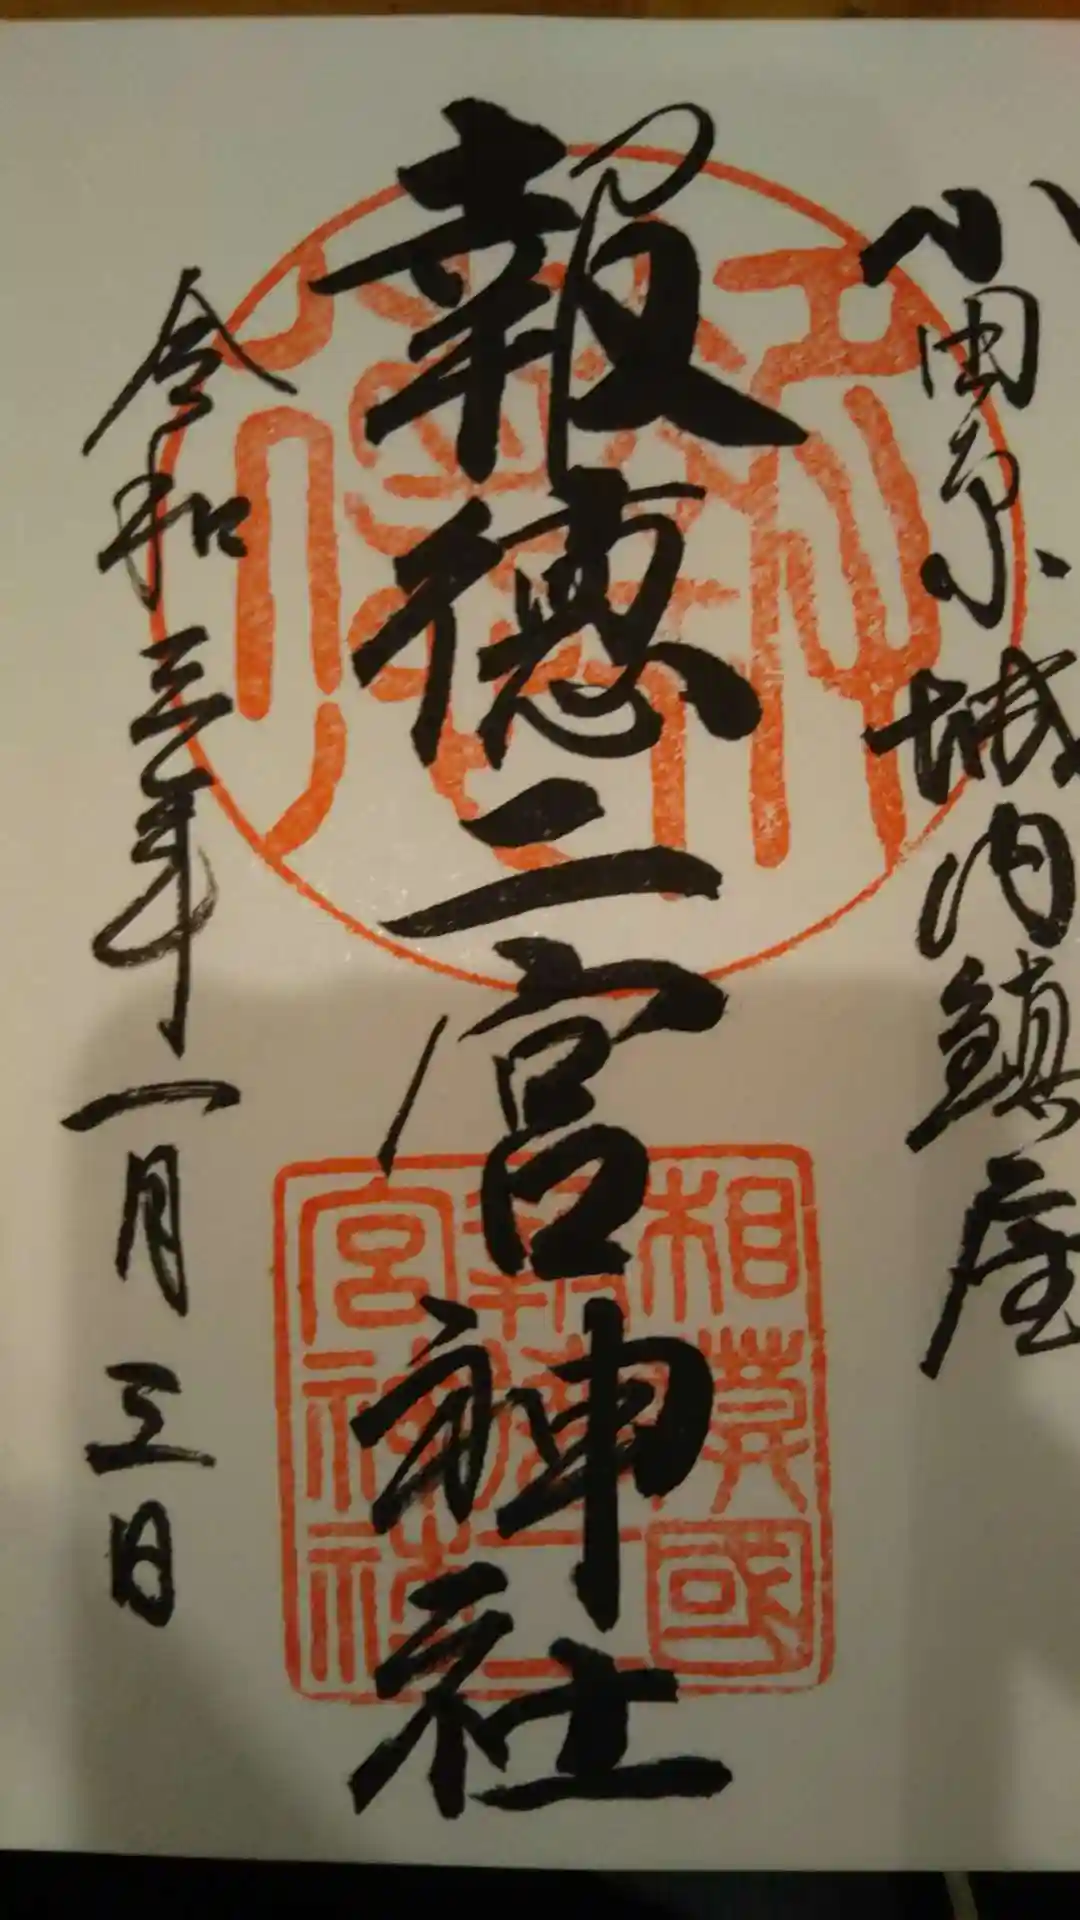 小田原城内鎮座
報徳二宮神社
令和三年一月三日
相莫國
報徳二
宮神社